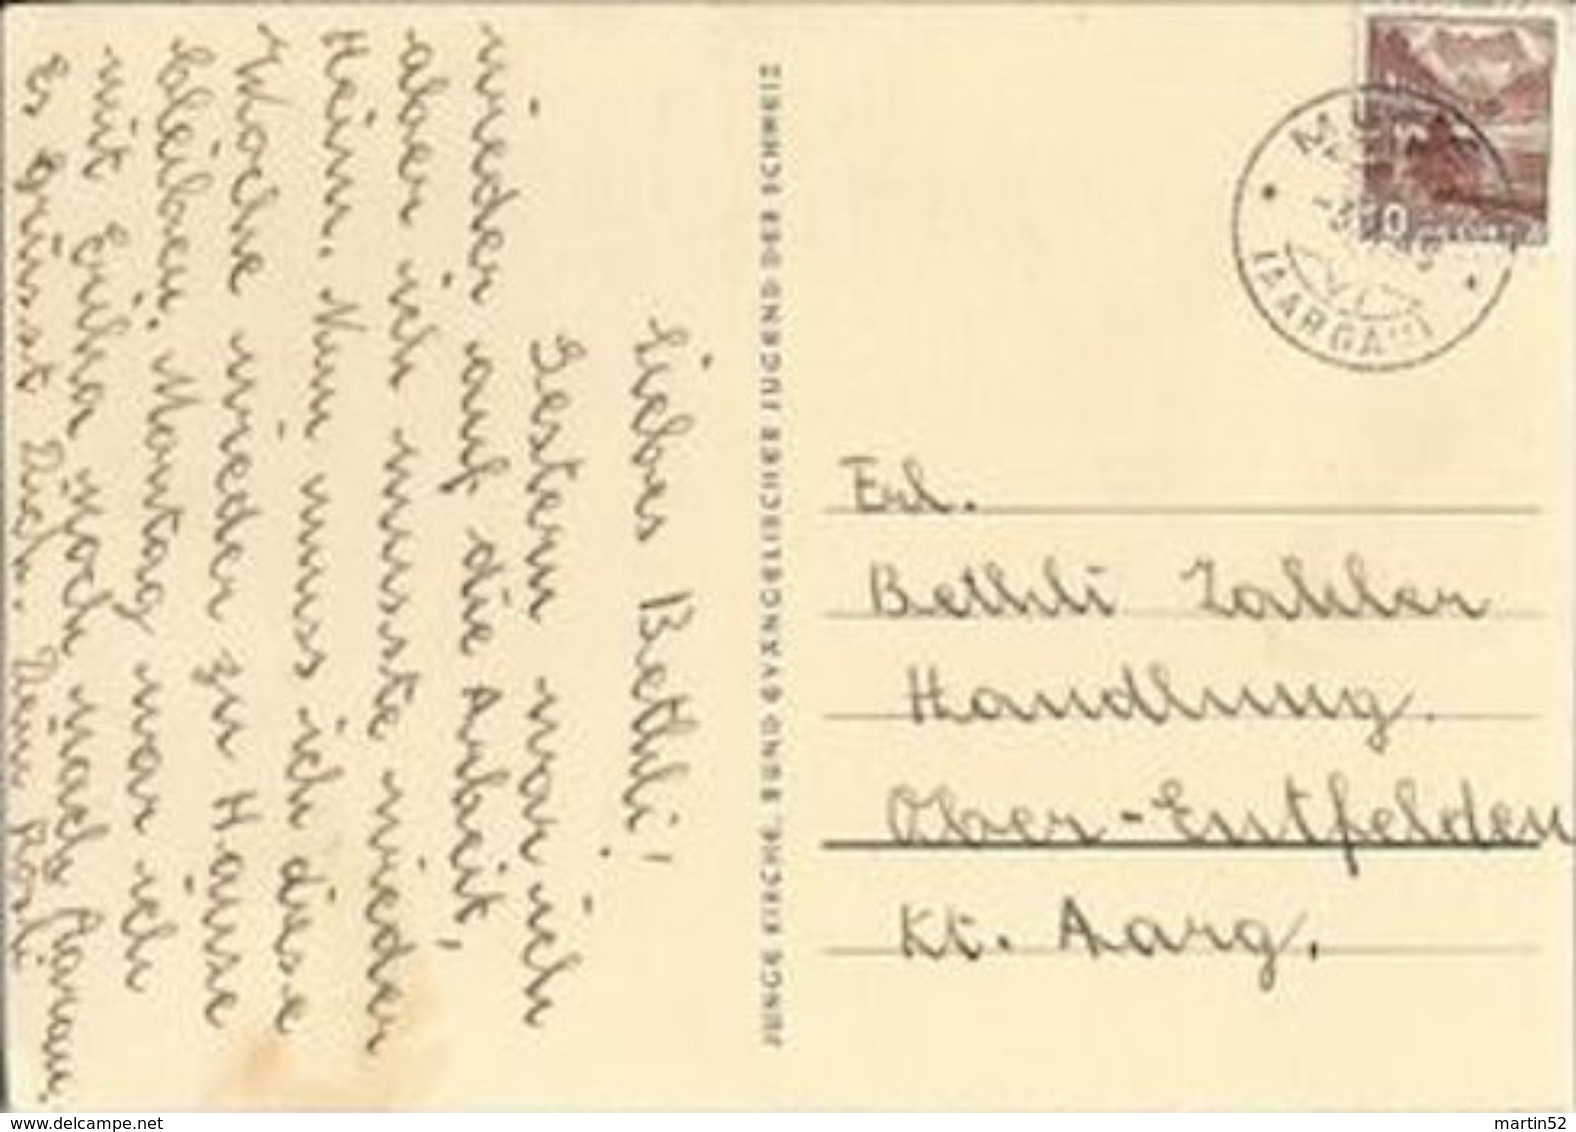 Liebes Bethli!
Gestern war ich
wieder auf die Arbeit,
aber ich musste wieder
Heim. Nun muss ich diese
Woche wieder zu Hause
bleiben. Montag war ich
mit Erika noch nach Aarau.
Es grüsst Dich. Dein Rösli
JUNGE KIRCHE, BUND EVANGELISCHER JUGEND DER SCHWEIZ
(AARGAU)
10 HELVETIA
Frl.
Bethli
Handlung.
Ober-Entfelden
Kt. Aarg.
delcampe.net
martin52